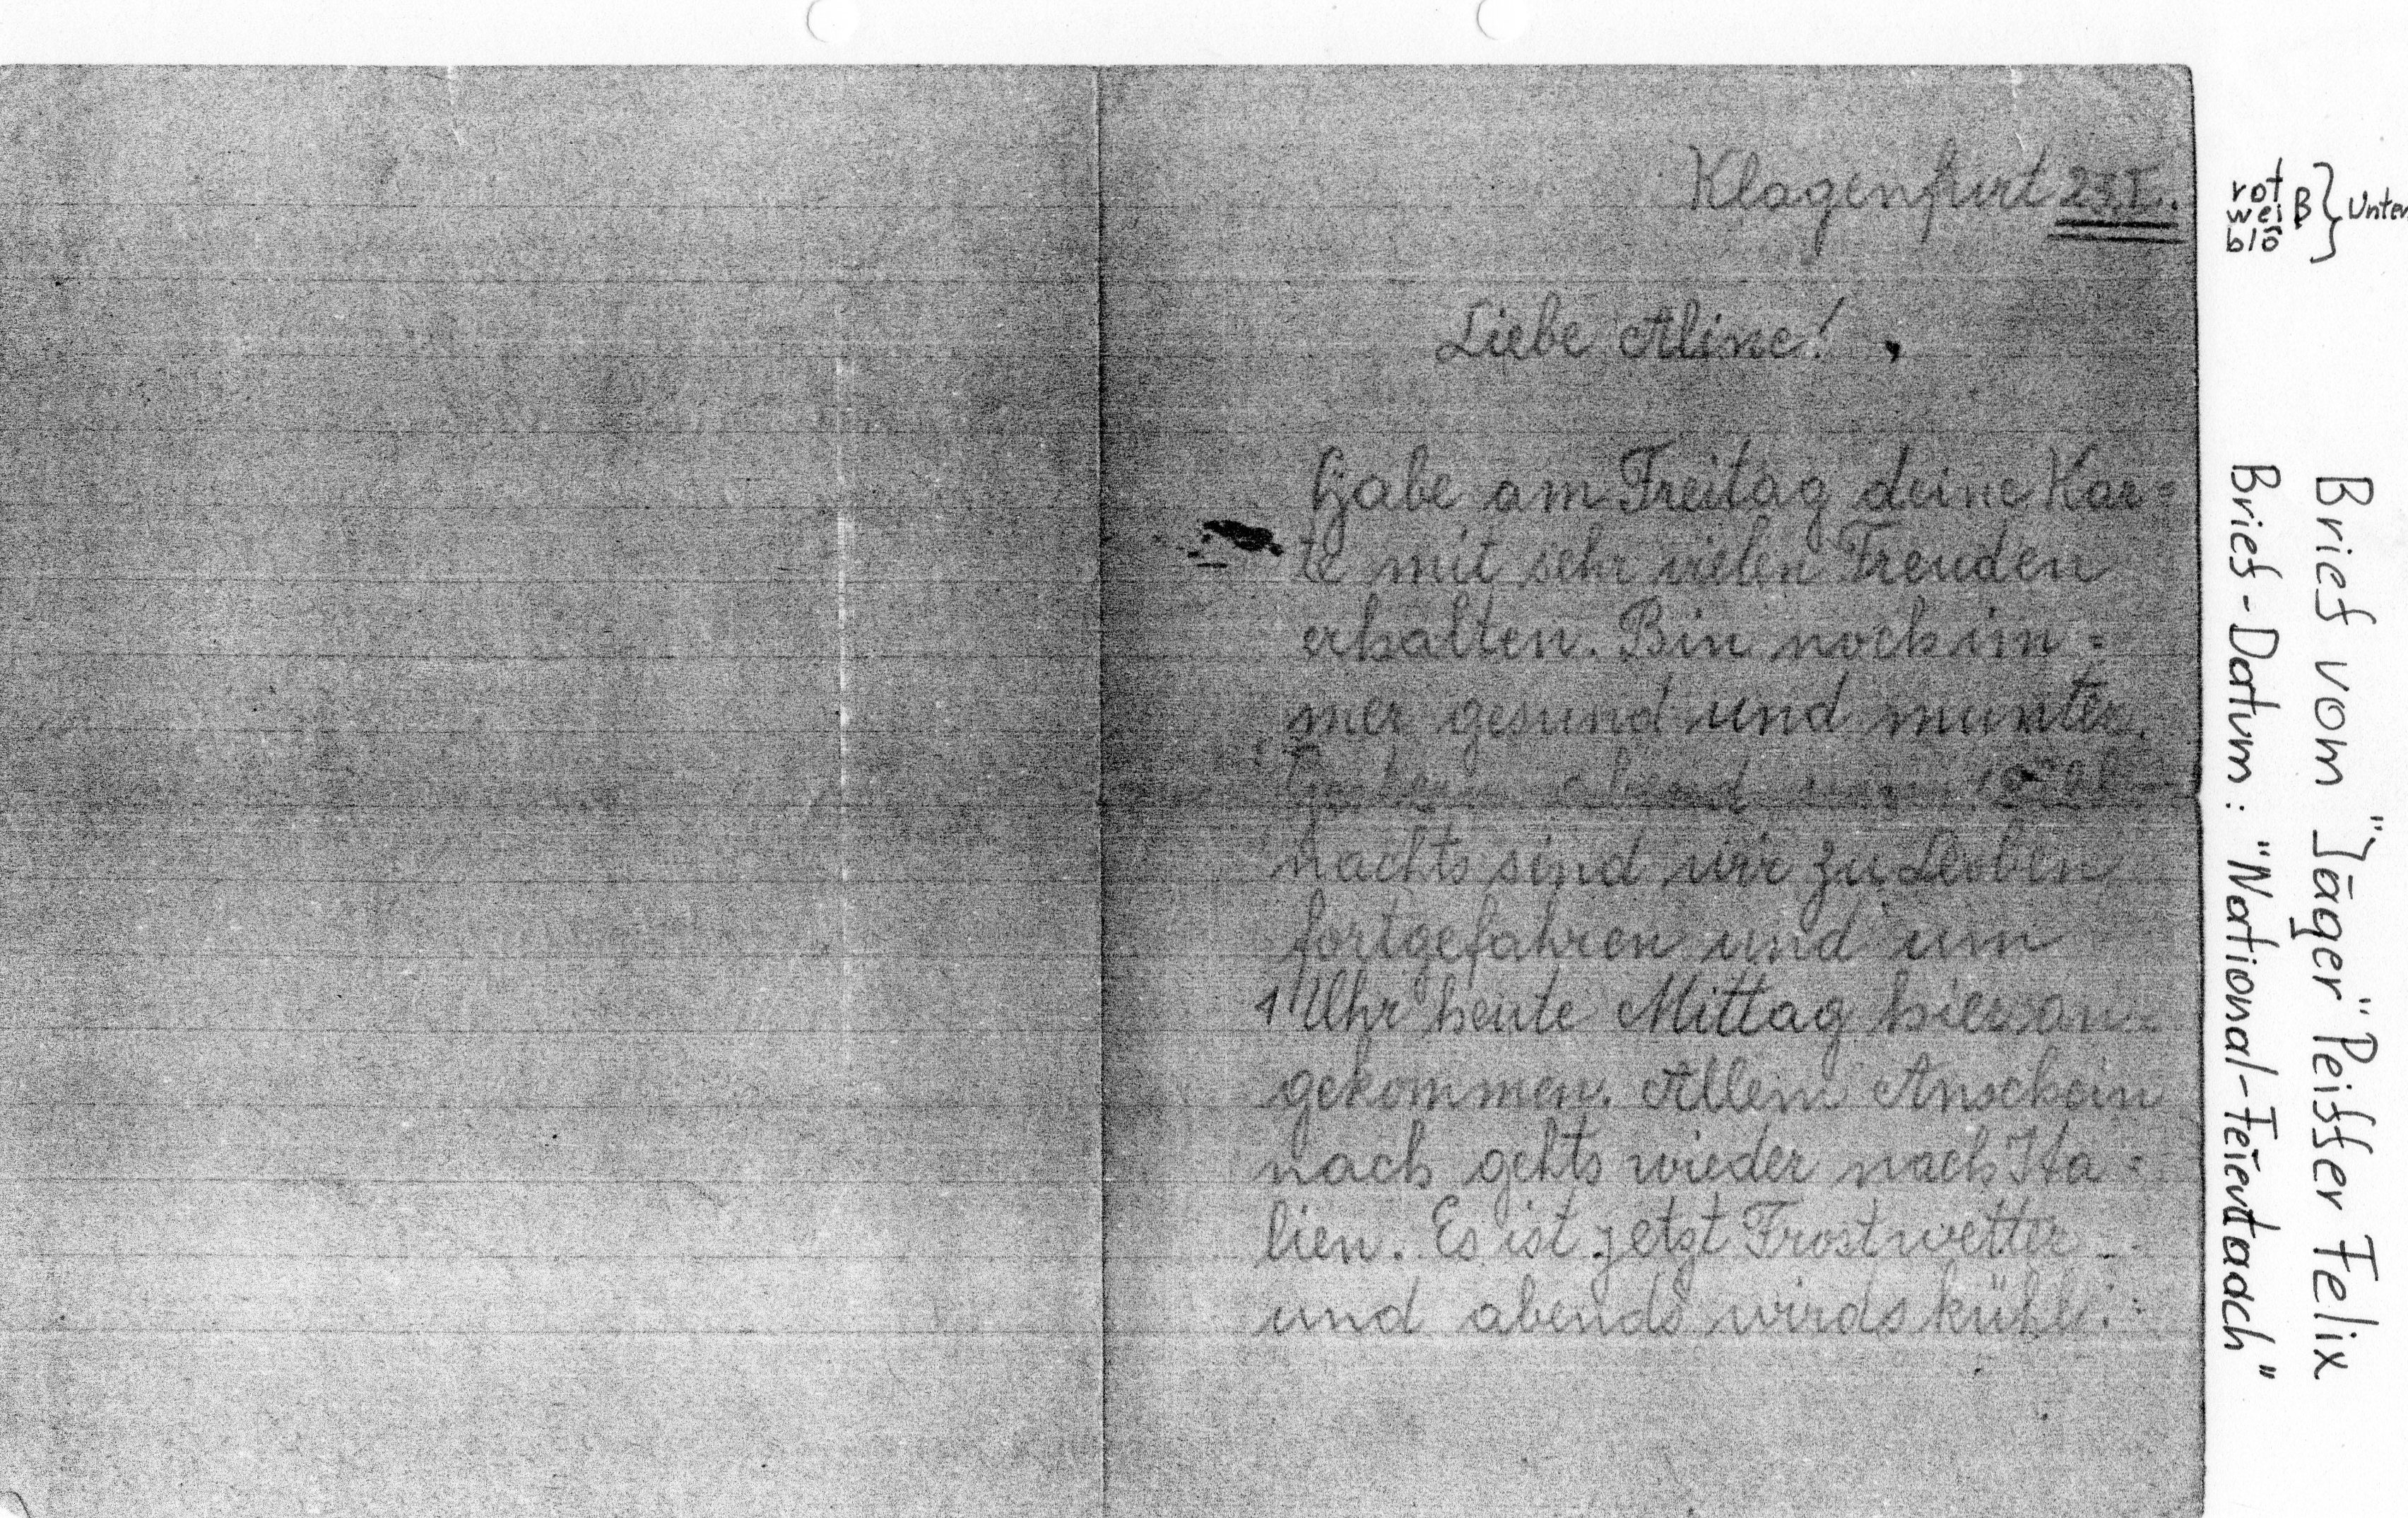 Klagenfurt 23.I.
Liebe Aline!
Habe am Freitag deine Kar=
te mit sehr vielen Freuden
erhalten. Bin noch im=
mer gesund und munter.
abend um
nachts sind wir zu Leoben
fortgefahren und um
1 Uhr heute Mittag hier an=
gekommen. Allem Anschein
nach gehts wieder nach Ita=
lien. Es ist jetzt Frostwetter
und abends wirds kühl
rot
weiß } Unter
blo
Brief vom "Jäger" Peiffer Felix
Brief-Datum: "National-Feierdaach"